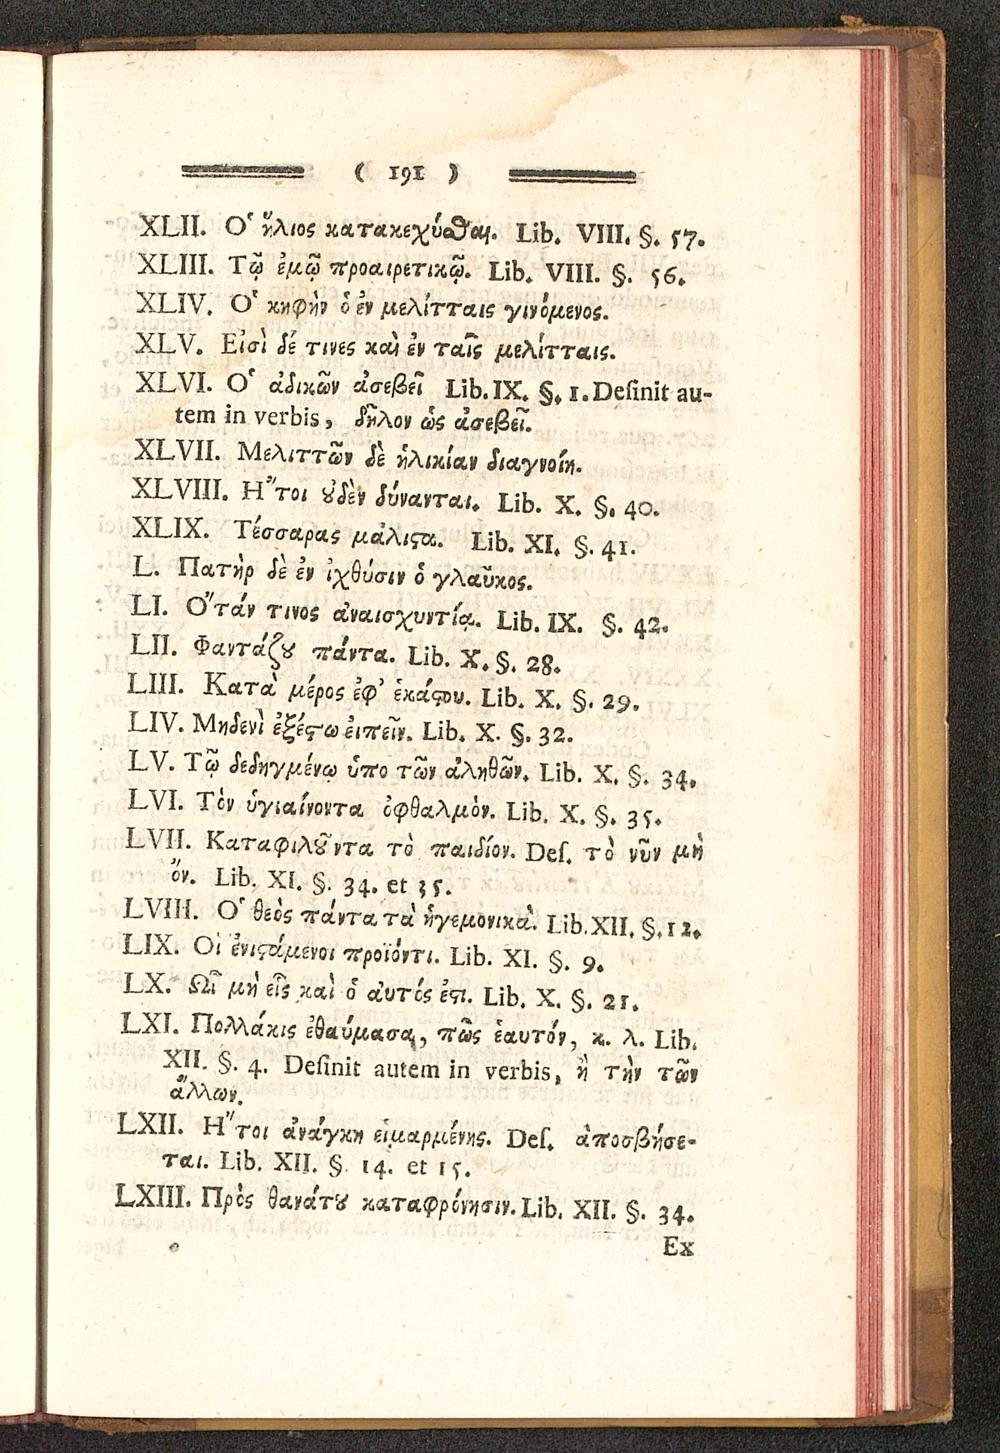 ( 191 )
XLII. Ὁ ἥλιος κατακεχύσθαι. Lib. VIII. §. 57.
XLIII. Τῷ ἐμῷ προαιρετικῷ. Lib. VIII. §. 56.
XLIV. Ὁ κηφὴν ὁ ἐν μελίτταις γινόμενος.
XLV. Εἰσὶ δέ τινες καὶ ἐν ταῖς μελίτταις.
XLVI. Ὁ ἀδικῶν ἀσεβεῖ Lib. IX. §. 1. Desinit au-
tem in verbis, δῆλον ὡς ἀσεβεῖ.
XLVII. Μελιττῶν δὲ ἡλικίαν διαγνοίη.
XLVIII. Ἤτοι ȣδὲν δύνανται. Lib. X. §. 40.
XLIX. Τέσσαρας μάλιϛα. Lib. XI. §. 41.
L. Πατὴρ δὲ ἐν ἰχθύσιν ὁ γλαῦκος.
LI. Ὅτάν τινος ἀναισχυντίᾳ. Lib. IX. §. 42.
LII. Φαντάζȣ πάντα. Lib. X. §. 28.
LIII. Κατὰ μέρος ἐφ' ἑκάϛου. Lib. X. §. 29.
LIV. Μηδενὶ ἐξέϛω ἐιπεῖν. Lib. X. §. 32.
LV. Τῷ δεδηγμένῳ ὑπο τῶν ἀληθῶν. Lib. X. §. 34.
LVI. Τὸν ὑγιαίνοντα ὀφθαλμὸν. Lib. X. §. 35.
LVII. Καταφιλȣ͂ντα τὸ παιδίον. Des. τὸ νῦν μὴ
ὄν. Lib. XI. §. 34. et 35.
LVIII. Ὁ θεὸς πάντα τὰ ἡγεμονικὰ. Lib. XII. §. 12.
LIX. Οἱ ἐνιϛάμενοι προϊόντι. Lib. XI. §. 9.
LX. Ὧι μὴ εἷς καὶ ὁ ἀυτός ἐϛι. Lib. X. §. 21.
LXI. Πολλάκις ἐθαύμασα, πῶς ἑαυτόν, κ. λ. Lib.
XII. §. 4. Desinit autem in verbis, ἢ τὴν τῶν
ἄλλων.
LXII. Ἤτοι ἀνάγκη εἱμαρμένης. Des. ἀποσβήσε-
ται. Lib. XII. §. 14. et 15.
LXIII. Πρὸς θανάτȣ καταφρόνησιν. Lib. XII. §. 34.
Ex